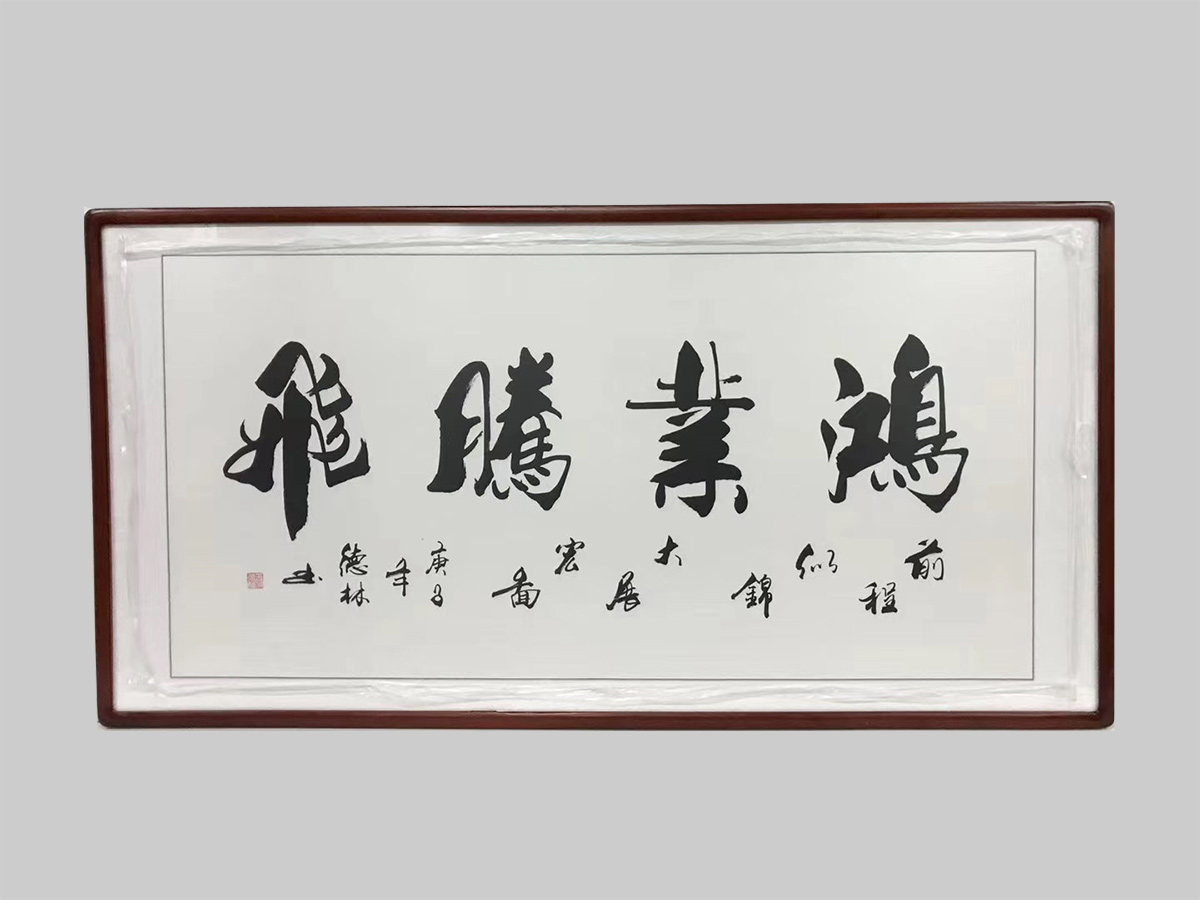 鴻業騰飛
前程似錦大展宏圖
庚子年
德林书